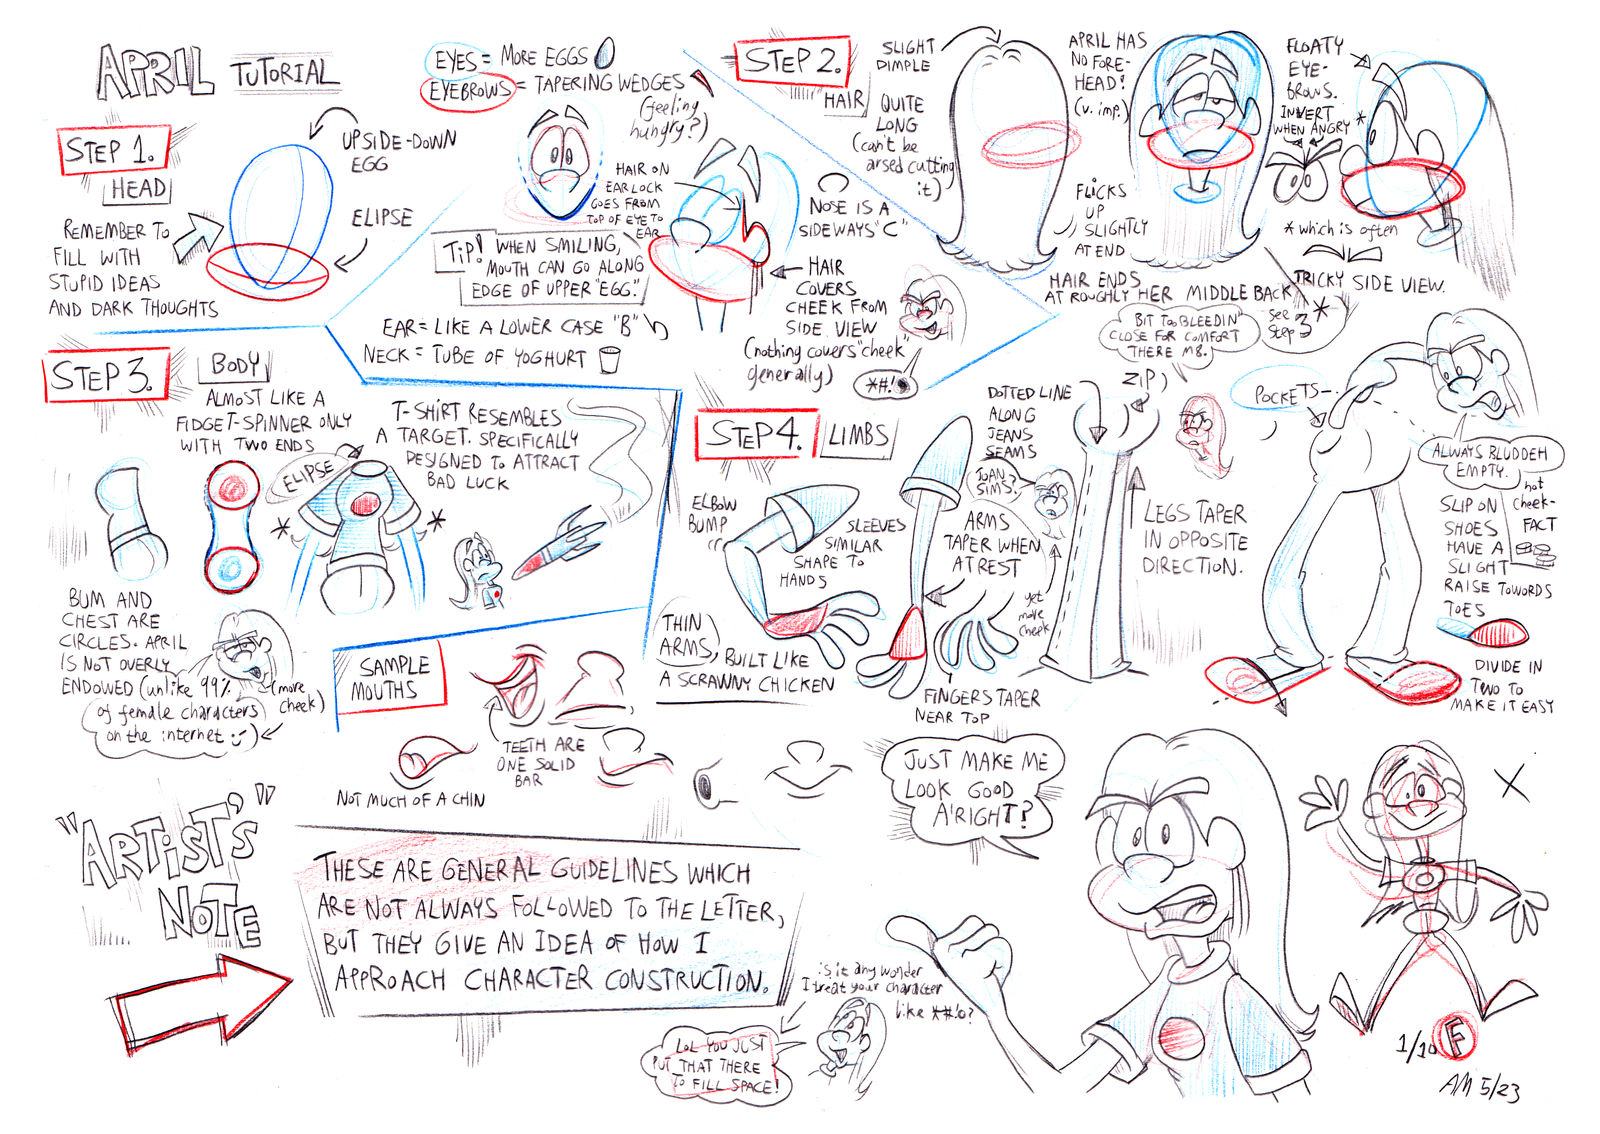 APRIL TUTORIAL
STEP 1.
HEAD
UPSIDE-DOWN
EGG
ELIPSE
REMEMBER TO
FILL WITH
STUPID IDEAS
AND DARK THOUGHTS
EYES = MORE EGGS
EYEBROWS = TAPERING WEDGES
(feeling
hungry?)
HAIR ON
EARLOCK
GOES FROM
TOP OF EYE TO
EAR
TIP! WHEN SMILING,
MOUTH CAN GO ALONG
EDGE OF UPPER "EGG."
NOSE IS A
SIDEWAYS "C"
HAIR
COVERS
CHEEK FROM
SIDE VIEW
(nothing covers "cheek"
generally)
*#!
EAR = LIKE A LOWER CASE "B"
NECK = TUBE OF YOGHURT
STEP 2.
HAIR
SLIGHT
DIMPLE
QUITE
LONG
(can't be
arsed cutting
it)
APRIL HAS
NO FORE-
HEAD!
(v. imp.)
FLICKS
UP
SLIGHTLY
AT END
HAIR ENDS
AT ROUGHLY HER MIDDLE BACK
FLOATY
EYE-
BROWS.
INVERT
WHEN ANGRY *
* which is often
TRICKY SIDE VIEW.
see *
Step 3
STEP 3.
BODY
ALMOST LIKE A
FIDGET-SPINNER ONLY
WITH TWO ENDS
ELIPSE
*
*
T-SHIRT RESEMBLES
A TARGET. SPECIFICALLY
DESIGNED TO ATTRACT
BAD LUCK
BUM AND
CHEST ARE
CIRCLES. APRIL
IS NOT OVERLY
ENDOWED (unlike 99%
of female characters
on the internet :-)
(more
cheek)
SAMPLE
MOUTHS
TEETH ARE
ONE SOLID
BAR
NOT MUCH OF A CHIN
STEP 4.
LIMBS
ELBOW
BUMP
SLEEVES
SIMILAR
SHAPE TO
HANDS
THIN
ARMS,
BUILT LIKE
A SCRAWNY CHICKEN
ARMS
TAPER WHEN
AT REST
FINGERS TAPER
NEAR TOP
DOTTED LINE
ALONG
JEANS
SEAMS
JOAN
SIMS?
yet
more
cheek
ZIP
BIT TOO BLEEDIN'
CLOSE FOR COMFORT
THERE M8.
LEGS TAPER
IN OPPOSITE
DIRECTION.
POCKETS
ALWAYS BLUDDEH
EMPTY.
not
cheek-
FACT
SLIP ON
SHOES
HAVE A
SLIGHT
RAISE TOWORDS
TOES
DIVIDE IN
TWO TO
MAKE IT EASY
"ARTIST'S"
NOTE
THESE ARE GENERAL GUIDELINES WHICH
ARE NOT ALWAYS FOLLOWED TO THE LETTER,
BUT THEY GIVE AN IDEA OF HOW I
APPROACH CHARACTER CONSTRUCTION.
JUST MAKE ME
LOOK GOOD
A'RIGHT?
is it any wonder
I treat your character
like **#!@?
LOL YOU JUST
PUT THAT THERE
TO FILL SPACE!
X
1/10 F
AM 5/23